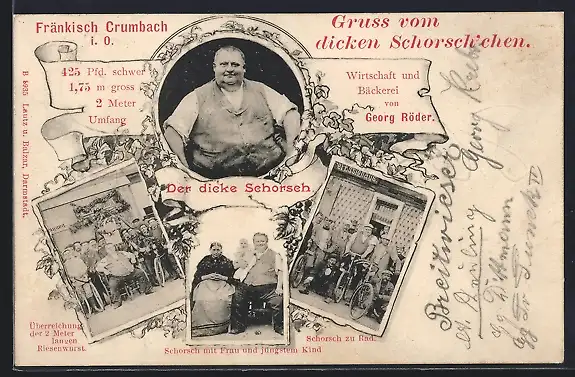 Fränkisch Crumbach
i. O.
Gruss vom
dicken Schorsch'chen.
425 Pfd. schwer
1,75 m gross
2 Meter
Umfang
Wirtschaft und
Bäckerei
von
Georg Röder.
Der dicke Schorsch.
Überreichung
der 2 Meter
langen
Riesenwurst.
Schorsch mit Frau und jüngstem Kind
Schorsch zu Rad.
B 8935 Lautz u. Balzar, Darmstadt.
Georg